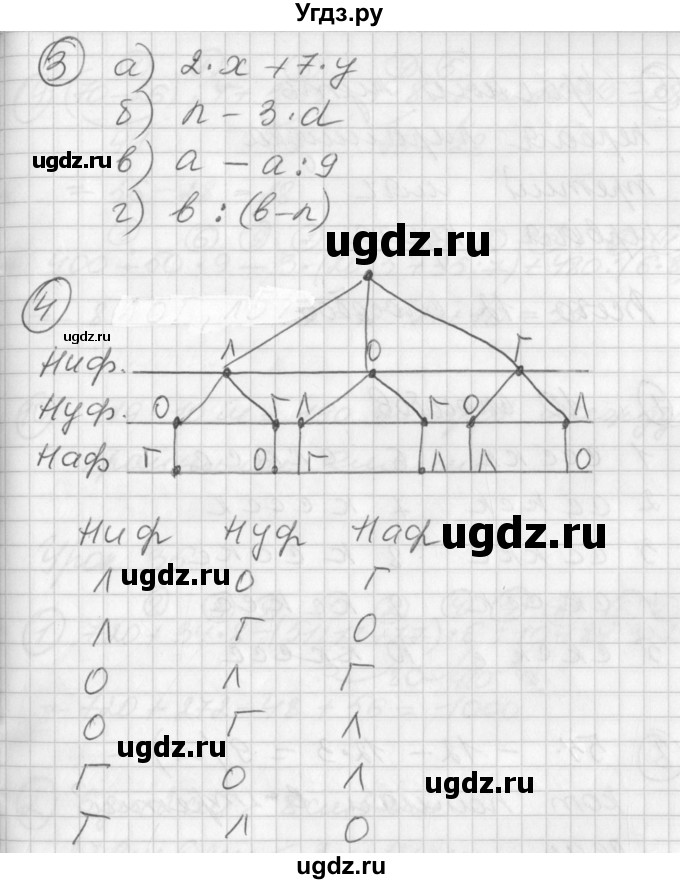 Угдз.ру
3 а) 2·x+7·y
б) n - 3·d
ugdz.ru в) a - a:9
г) в:(в-n)
ugdz.ru
4
ugdz.ru
Л О Г
Ниф.
Нуф. О Г Л Г О Л
Наф Г О Г Л Л О
Ниф Нуф Наф ugdz.ru
Л О Г
ugdz.ru
Л Г О
О Л Г
О Г Л
ugdz.ru
Г О Л
ugdz.ru
Г Л О
ugdz.ru